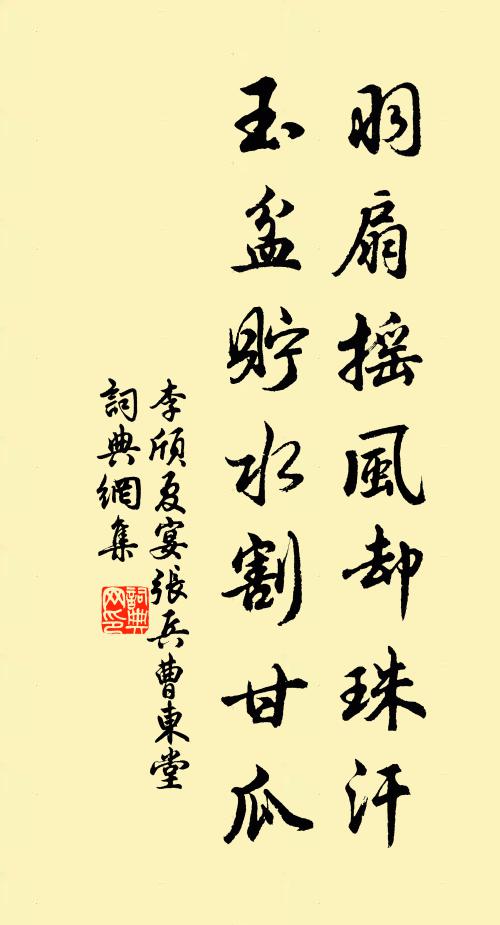 羽扇搖風却珠汗
玉盆貯水割甘瓜
李頎夏宴張兵曹東堂
詞典網集
詞典网印